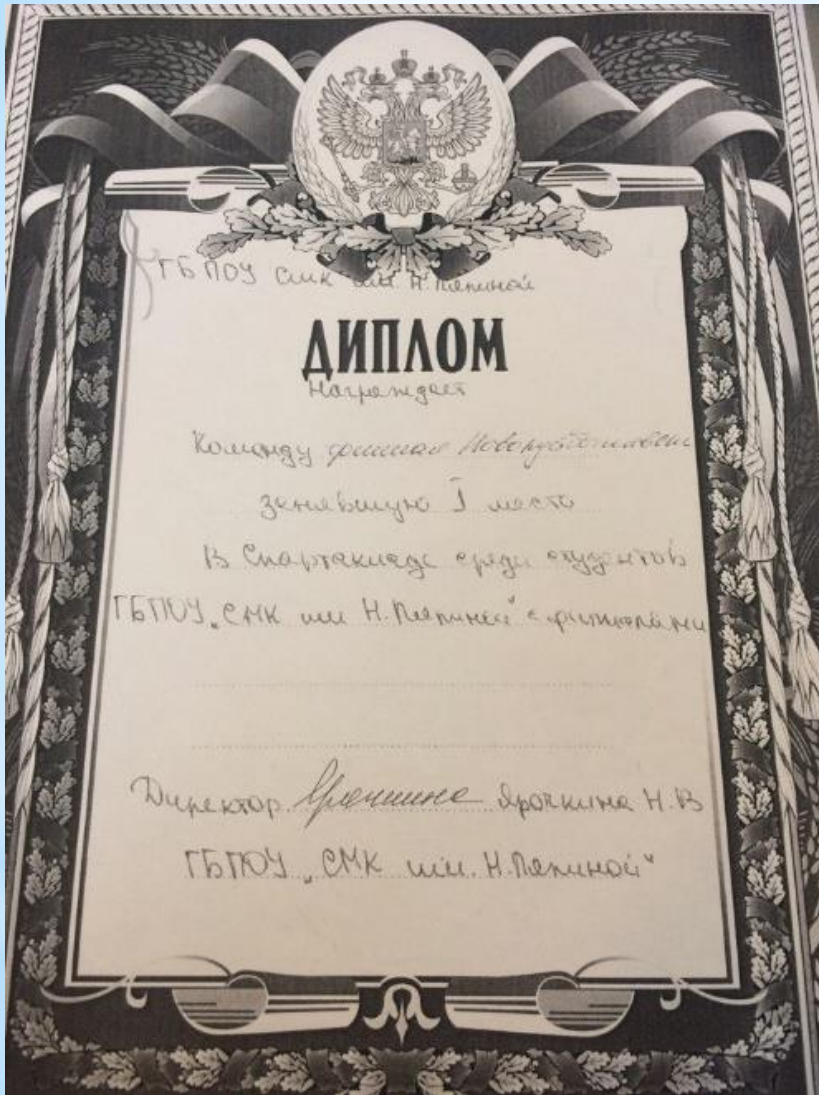 ГБПОУ СМК им Н. Ляпиной
ДИПЛОМ
Награждает
Команду филиал
занявшую I место
В Спартакиаде среди студентов
ГБПОУ „СМК им Н. Ляпиной" с филиалами
Директор Ярочкина Н.В
ГБПОУ „СМК им. Н. Ляпиной"